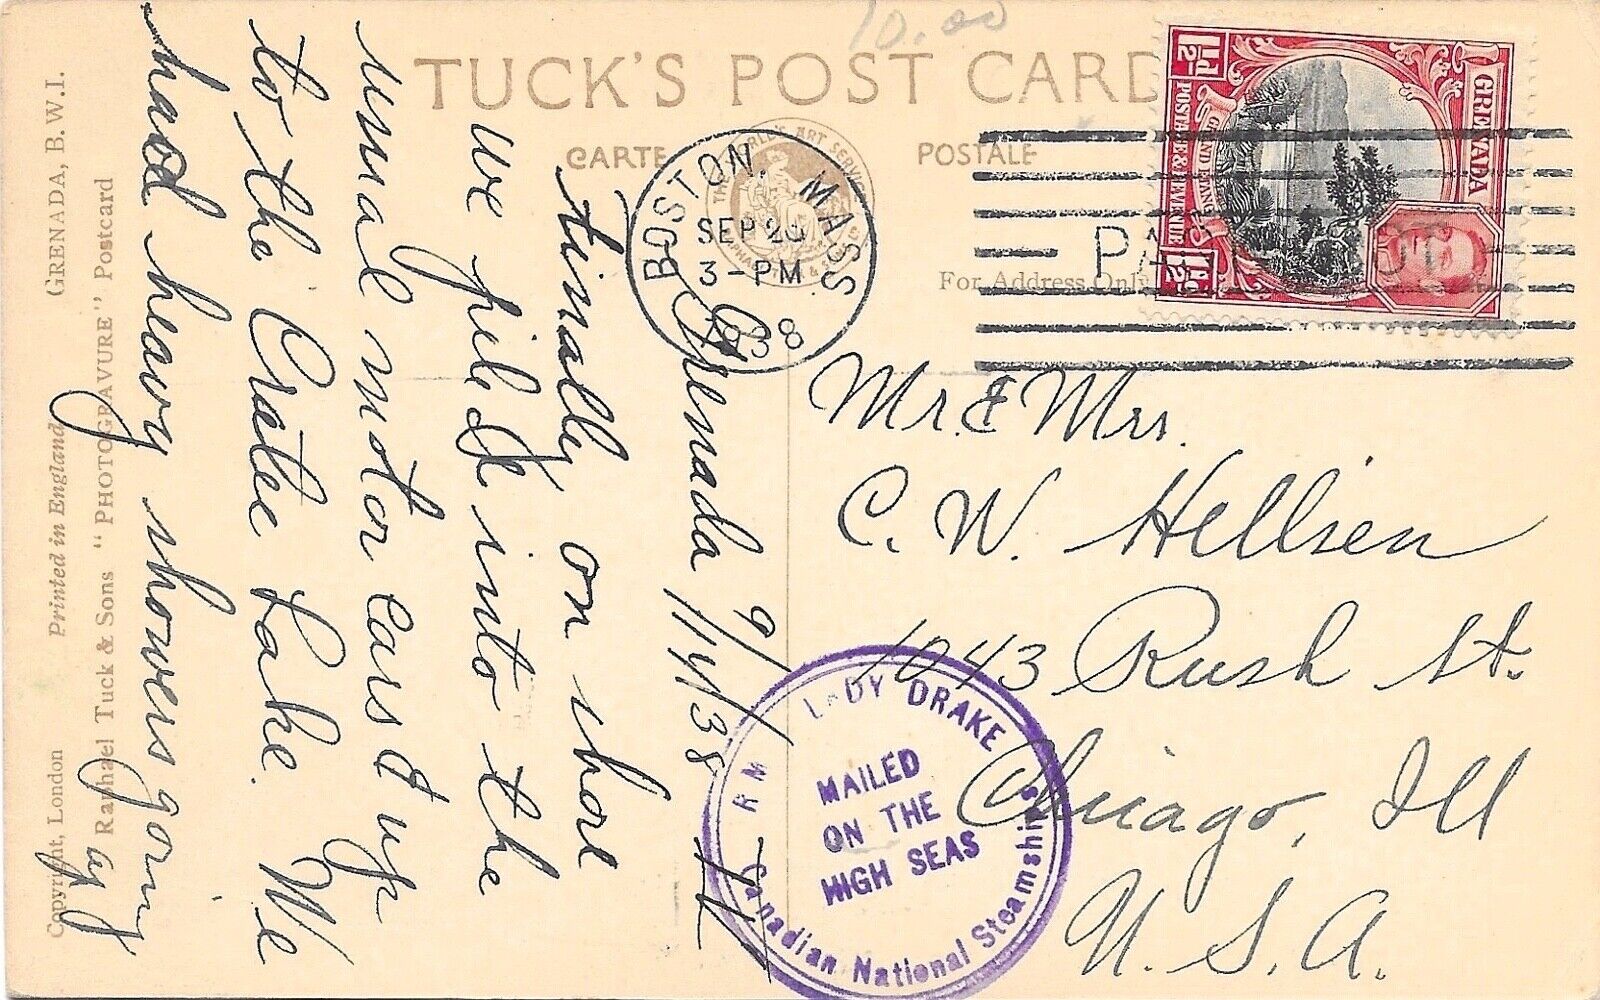 10.00
TUCK'S POST CARD
CARTE POSTALE
THE WORLD'S ART SERVICE
For Address Only
BOSTON, MASS
SEP 20
3-PM
1938
GRENADA
GRAND ETANG
POSTAGE & REVENUE
1½d
1½d
Grenada 9/14/38
Finally on shore
We piled into the
usual motor cars & up
to the Crater Lake. We
had heavy showers going
Mr. & Mrs.
C. W. Hellsen
1043 Rush St.
Chicago, Ill
U. S. A.
R M LADY DRAKE
MAILED
ON THE
HIGH SEAS
Canadian National Steamships
GRENADA, B.W.I.
Copyright, London Printed in England
Raphael Tuck & Sons "PHOTOGRAVURE" Postcard